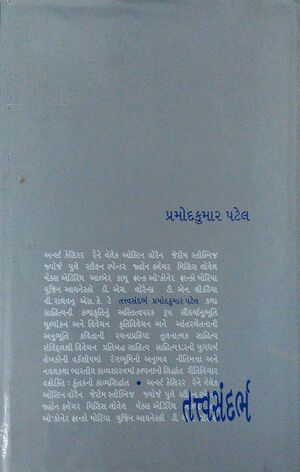 પ્રમોદકુમાર પટેલ
અર્ન્સ્ટ કેસિરર રેને વેલેક ઑસ્ટિન વૉરેન જેરોમ સ્તોલ્નિજ
જ્યોર્જ પુલે સ્ટીફન સ્પેન્ડર જ્હૉન ફ્લેચર મિસિસ લેવેલ
મેક્સ એડિરિથ આલ્બેર કામૂ ફ્રાન્ક ઓ'કોનેર ફ્રાન્કો મોરિયા
યુજિન આયનેસ્કો ડી. એચ. લૉરેન્સ ટી. એન. શ્રીકંઠિયા
વી. રાઘવન્ એસ. કે. ડે તત્ત્વસંદર્ભ પ્રમોદકુમાર પટેલ કળા
સાહિત્યની કળાકૃતિનું અસ્તિત્વપરક રૂપ સૌંદર્યાનુભૂતિ
મૂલ્યાંકન અને વિવેચન કૃતિવિવેચન અને આંતરચેતનાની
અનુભૂતિ કવિતાની રચનાપ્રક્રિયા તુલનાત્મક સાહિત્ય
સંવિદ્લક્ષી વિવેચન પ્રતિબદ્ધ સાહિત્ય સાહિત્યકારનો યુગધર્મ
લેખકોની વર્કશોપમાં રંગભૂમિનો અનુભવ નીતિમત્તા અને
નવલકથા ભારતીય કાવ્યશાસ્ત્રમાં કલ્પનાનો સિદ્ધાંત રીતિવિચાર
વક્રોક્તિ : કુંતકનો કાવ્યસિદ્ધાંત અર્ન્સ્ટ કેસિરર રેને વેલેક
ઑસ્ટિન વૉરેન જેરોમ સ્તોલ્નિજ જ્યોર્જ પુલે સ્ટીફન
જ્હૉન ફ્લેચર મિસિસ લેવેલ મેક્સ એડિરિથ
ઓ'કોનેર ફ્રાન્કો મોરિયા યુજિન આયનેસ્કો ડી. એચ.
તત્ત્વસંદર્ભ